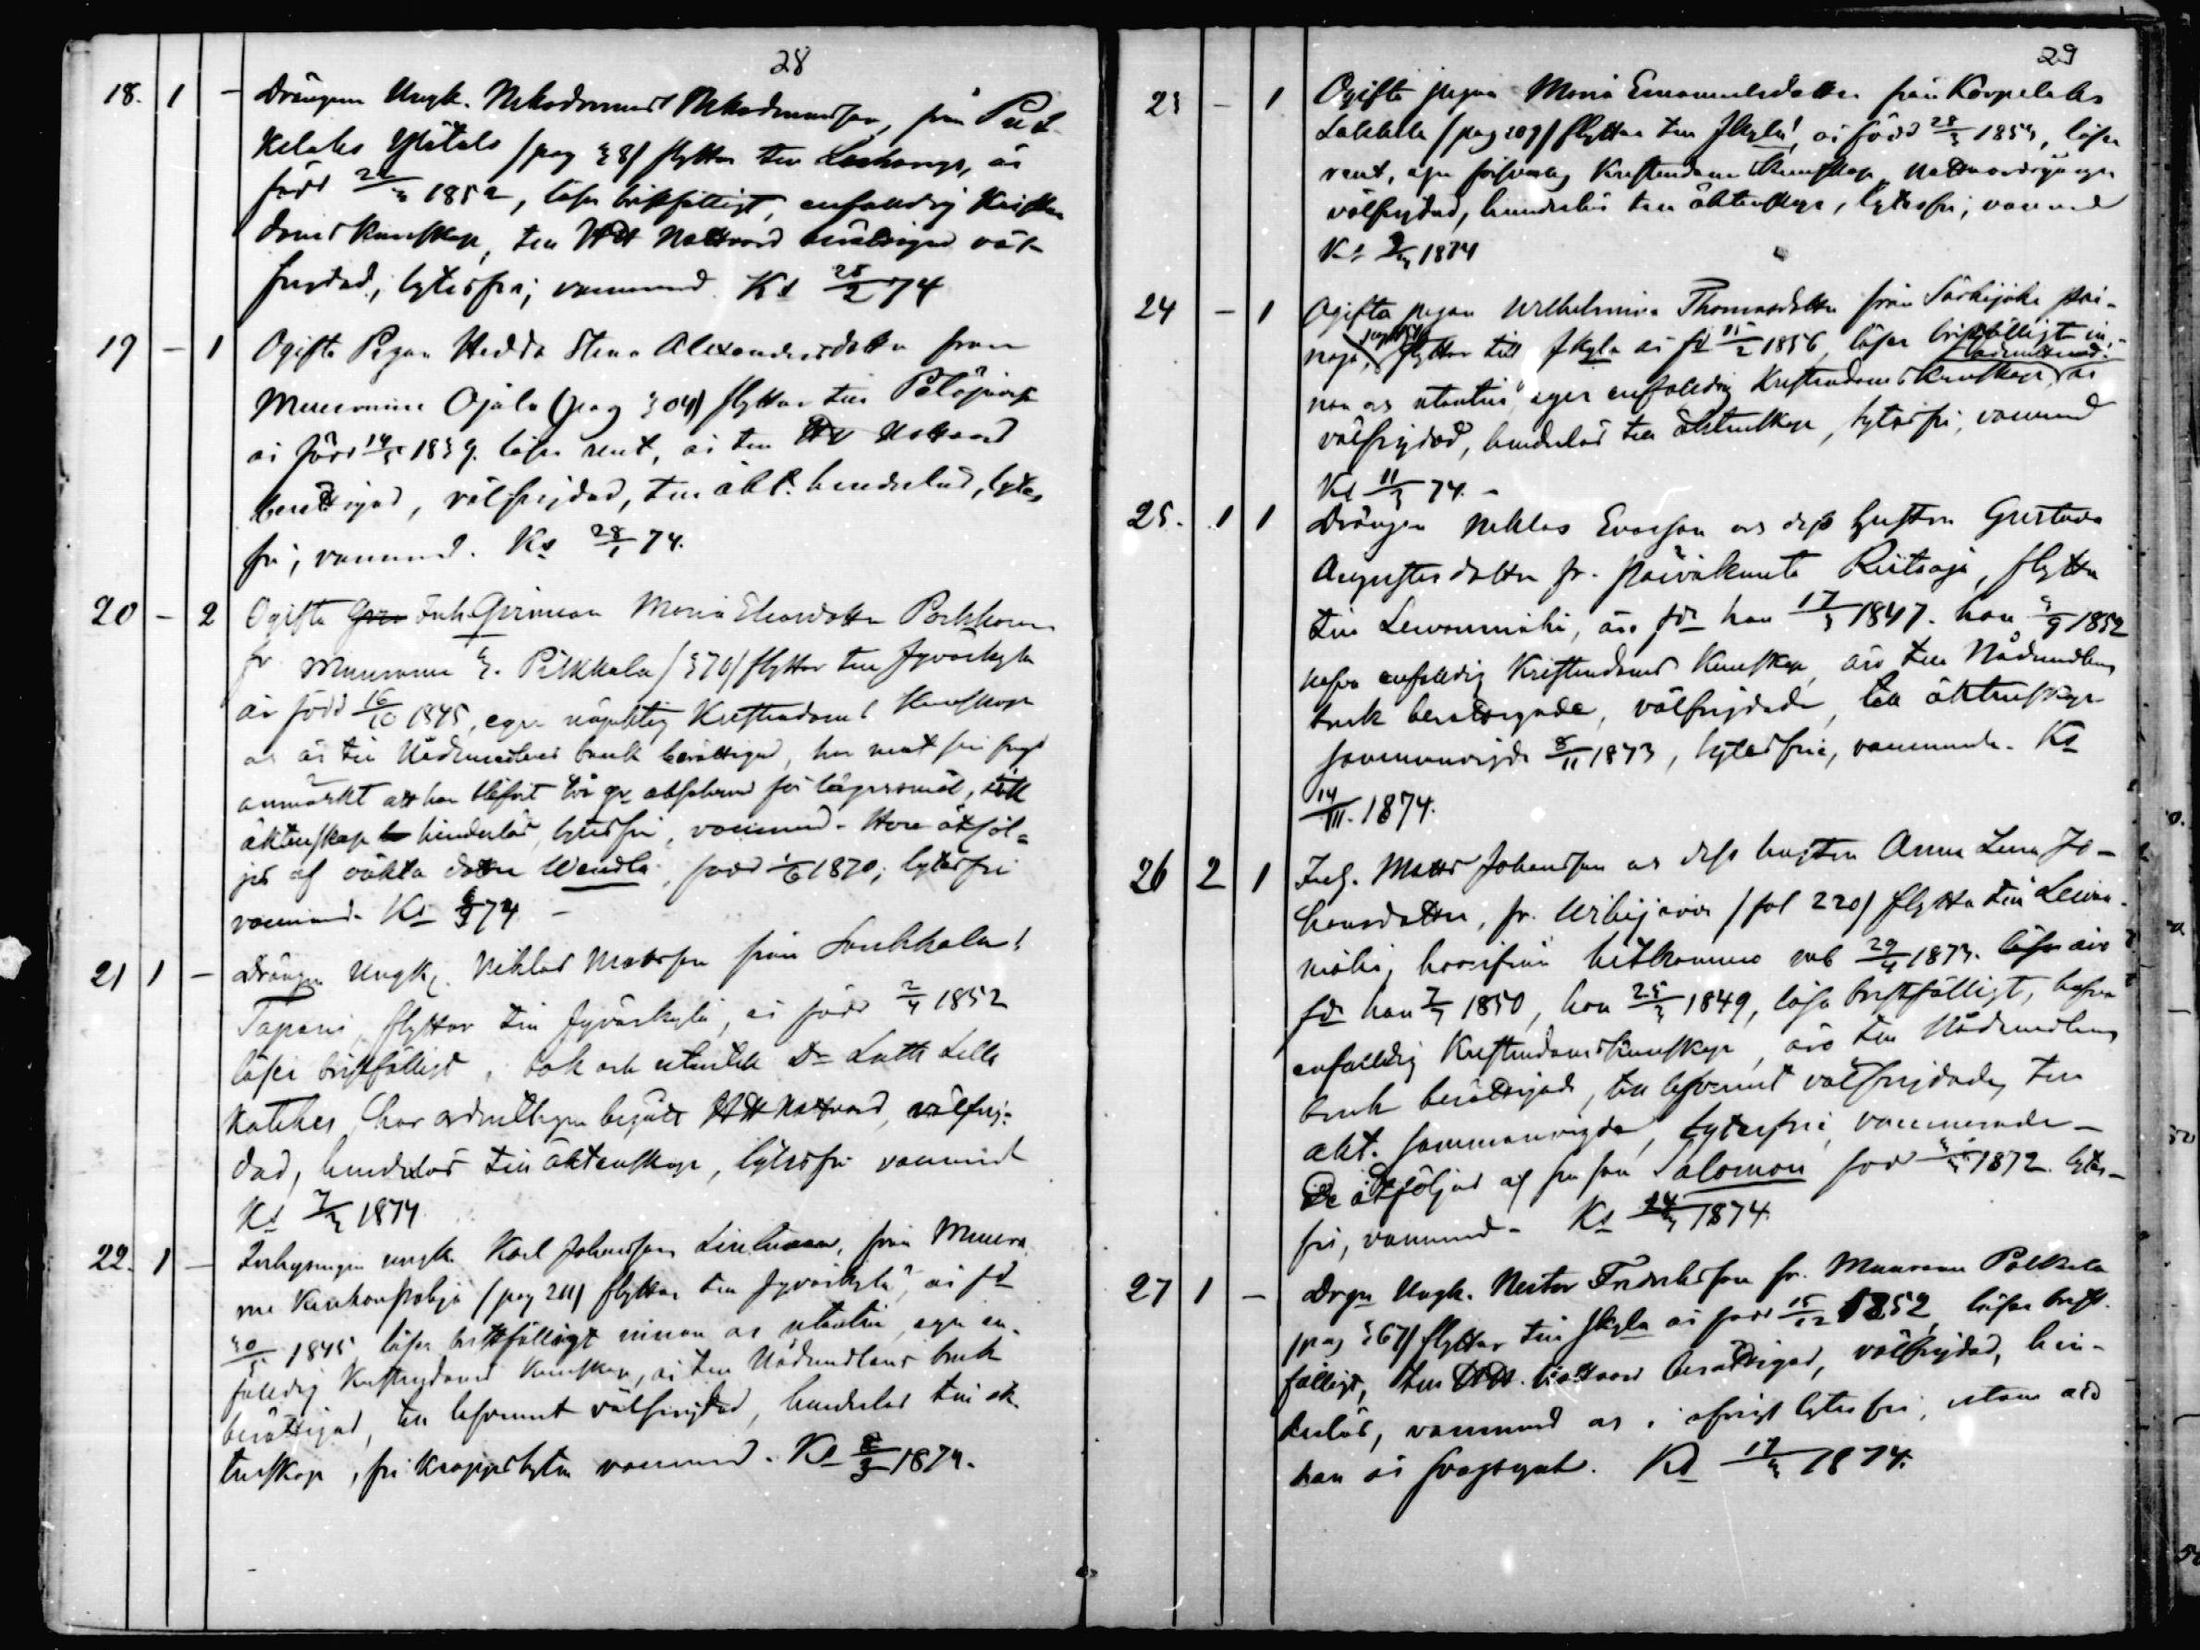 28
18. 1 - Drängen Ungk. Nikodemus Nikodemusson, från Puk-
kelaks Ylätalo (pag 38) flyttar till Leskangs, är
född 22/3 1852, läser bristfälligt, enfaldig Kristen
doms kunskap, till HH Nattvard berättigad väl-
frejdad, lytesfri, vaccinerad. Ks 28/2 74
19 - 1 Ogifta Pigan Hedda Stina Alexandersdotter från
Muurame Ojala (pag 304) flyttar till Petäjäves
är född 14/5 1839. läser rent, är till HH Nattvard
berättigad, välfrejdad, till äkt. hinderlös, lytes
fri, vaccinerad. Ks 28/1 74.
20 - 2 Ogifta Inh. Qvinnan Maria Eliasdotter Parkkonen
fr Muurame Pilkkala (370) flyttar till Jyväskylä
är född 16/10 1845, eger nöjaktig Kristendoms Kunskap
och är till Nådemedlens bruk berättigad, har mot sin frejd
anmärkt att hon blifvit två gr absolverad för lägersmål, till
äktenskap hinderlös, lytesfri, vaccinerad. Hon åtföl=
jes af oäkta dottren Wendla, född 1/6 1870, lytesfri
vaccinerad. Ks 6/3 74 -
21 1 - Drängen Ungk. Niklas Mattsson från Saukkola
Tapani, flyttar till Jyväskylä, är född 2/4 1852
läser bristfälligt, bok och utantill Dr Luth Lilla
Katekes, har ordentligen begått HH Nattvard, välfrej-
dad, hinderlös till äktenskap, lytesfri vaccinerad
Ks 7/3 1874
22. 1 - Inhysingen ungk. Karl Johansson Lindman, från Muura
me Kinkonpohja (pag 211) flyttar till Jyväskylä, är fd
30/5 1845 läser bristfälligt innan och utantill, eger en-
faldig Kristendoms Kunskap, är till Nådemedlens bruk
berättigad, till lefvernet välfrejdad, hinderlös till äk
tenskap, fri kroppslyten vaccinerad. Ks 8/3 1874.
29
23 - 1 Ogifta pigan Maria Emanuelsdotter från Korpelaks
Lakkala (pag 209) flyttar till Jkylä, är född 28/3 1854, läser
rent, eger försvarlig Kristendoms Kunskap, Nattvardsgången
välfrejdad, hinderlös till äktenskap, lytesfri, vaccinerad
Ks 9/3 1874
24 - 1 Ogifta pigan Wilhelmina Thomasdotter från Särkijoki
flyttar till Jkylä är fd 15/2 1856, läser bristfälligt in-
nan och utantill, eger enfaldig Kristendoms Kunskap, är
välfrejdad, hinderlös till äktenskap, lytesfri, vaccinerad
Ks 11/3 74. -
25. 1 1 Drängen Niklas Evasson och dess hustru Gustava
Augustesdotter fr. Päiväkunta Riitoja, flytta
till Lewonmäki, äro fdde han 17/3 1847. hon 3/9 1852
hafva enfaldig Kristendoms Kunskap, äro till Nådemedlens
bruk berättigade, välfrejdade, till äktenskap
sammanvigde 8/11 1873, lytesfria, vaccinerade. Ks
14/III. 1874.
26 2 1 Inh. Matts Johansson och dess hustru Anna Lena Jo-
hansdotter, fr. Wihijärvi (fol 220) flytta till Lewon-
mäki, hvarifrån hitkommo mb 29/4 1873. äro
fdde han 7/3 1850, hon 25/3 1849, läsa bristfälligt, hafva
enfaldig Kristendomskunskap, äro till Nådemedlens
bruk berättigade, till lefvernet välfrejdade, till
äkt. sammanvigda, lytesfria, vaccinerade -
De åtföljas af sin son Salomon född 1872. lytes-
fri, vaccinerad - Ks 14/3 1874
27 1 - Drgn Ungk. Nestor Fredriksson fr. Muurame Pölkkala
(pag 367) flyttar till Jkylä är född 15/12 1852, läser brist-
fälligt, till HH. Nattvard berättigad, välfrejdad, hin-
derlös, vaccinerad och i öfrigt lytesfri, utom att
han är svagsynt. Ks 17/3 1874.